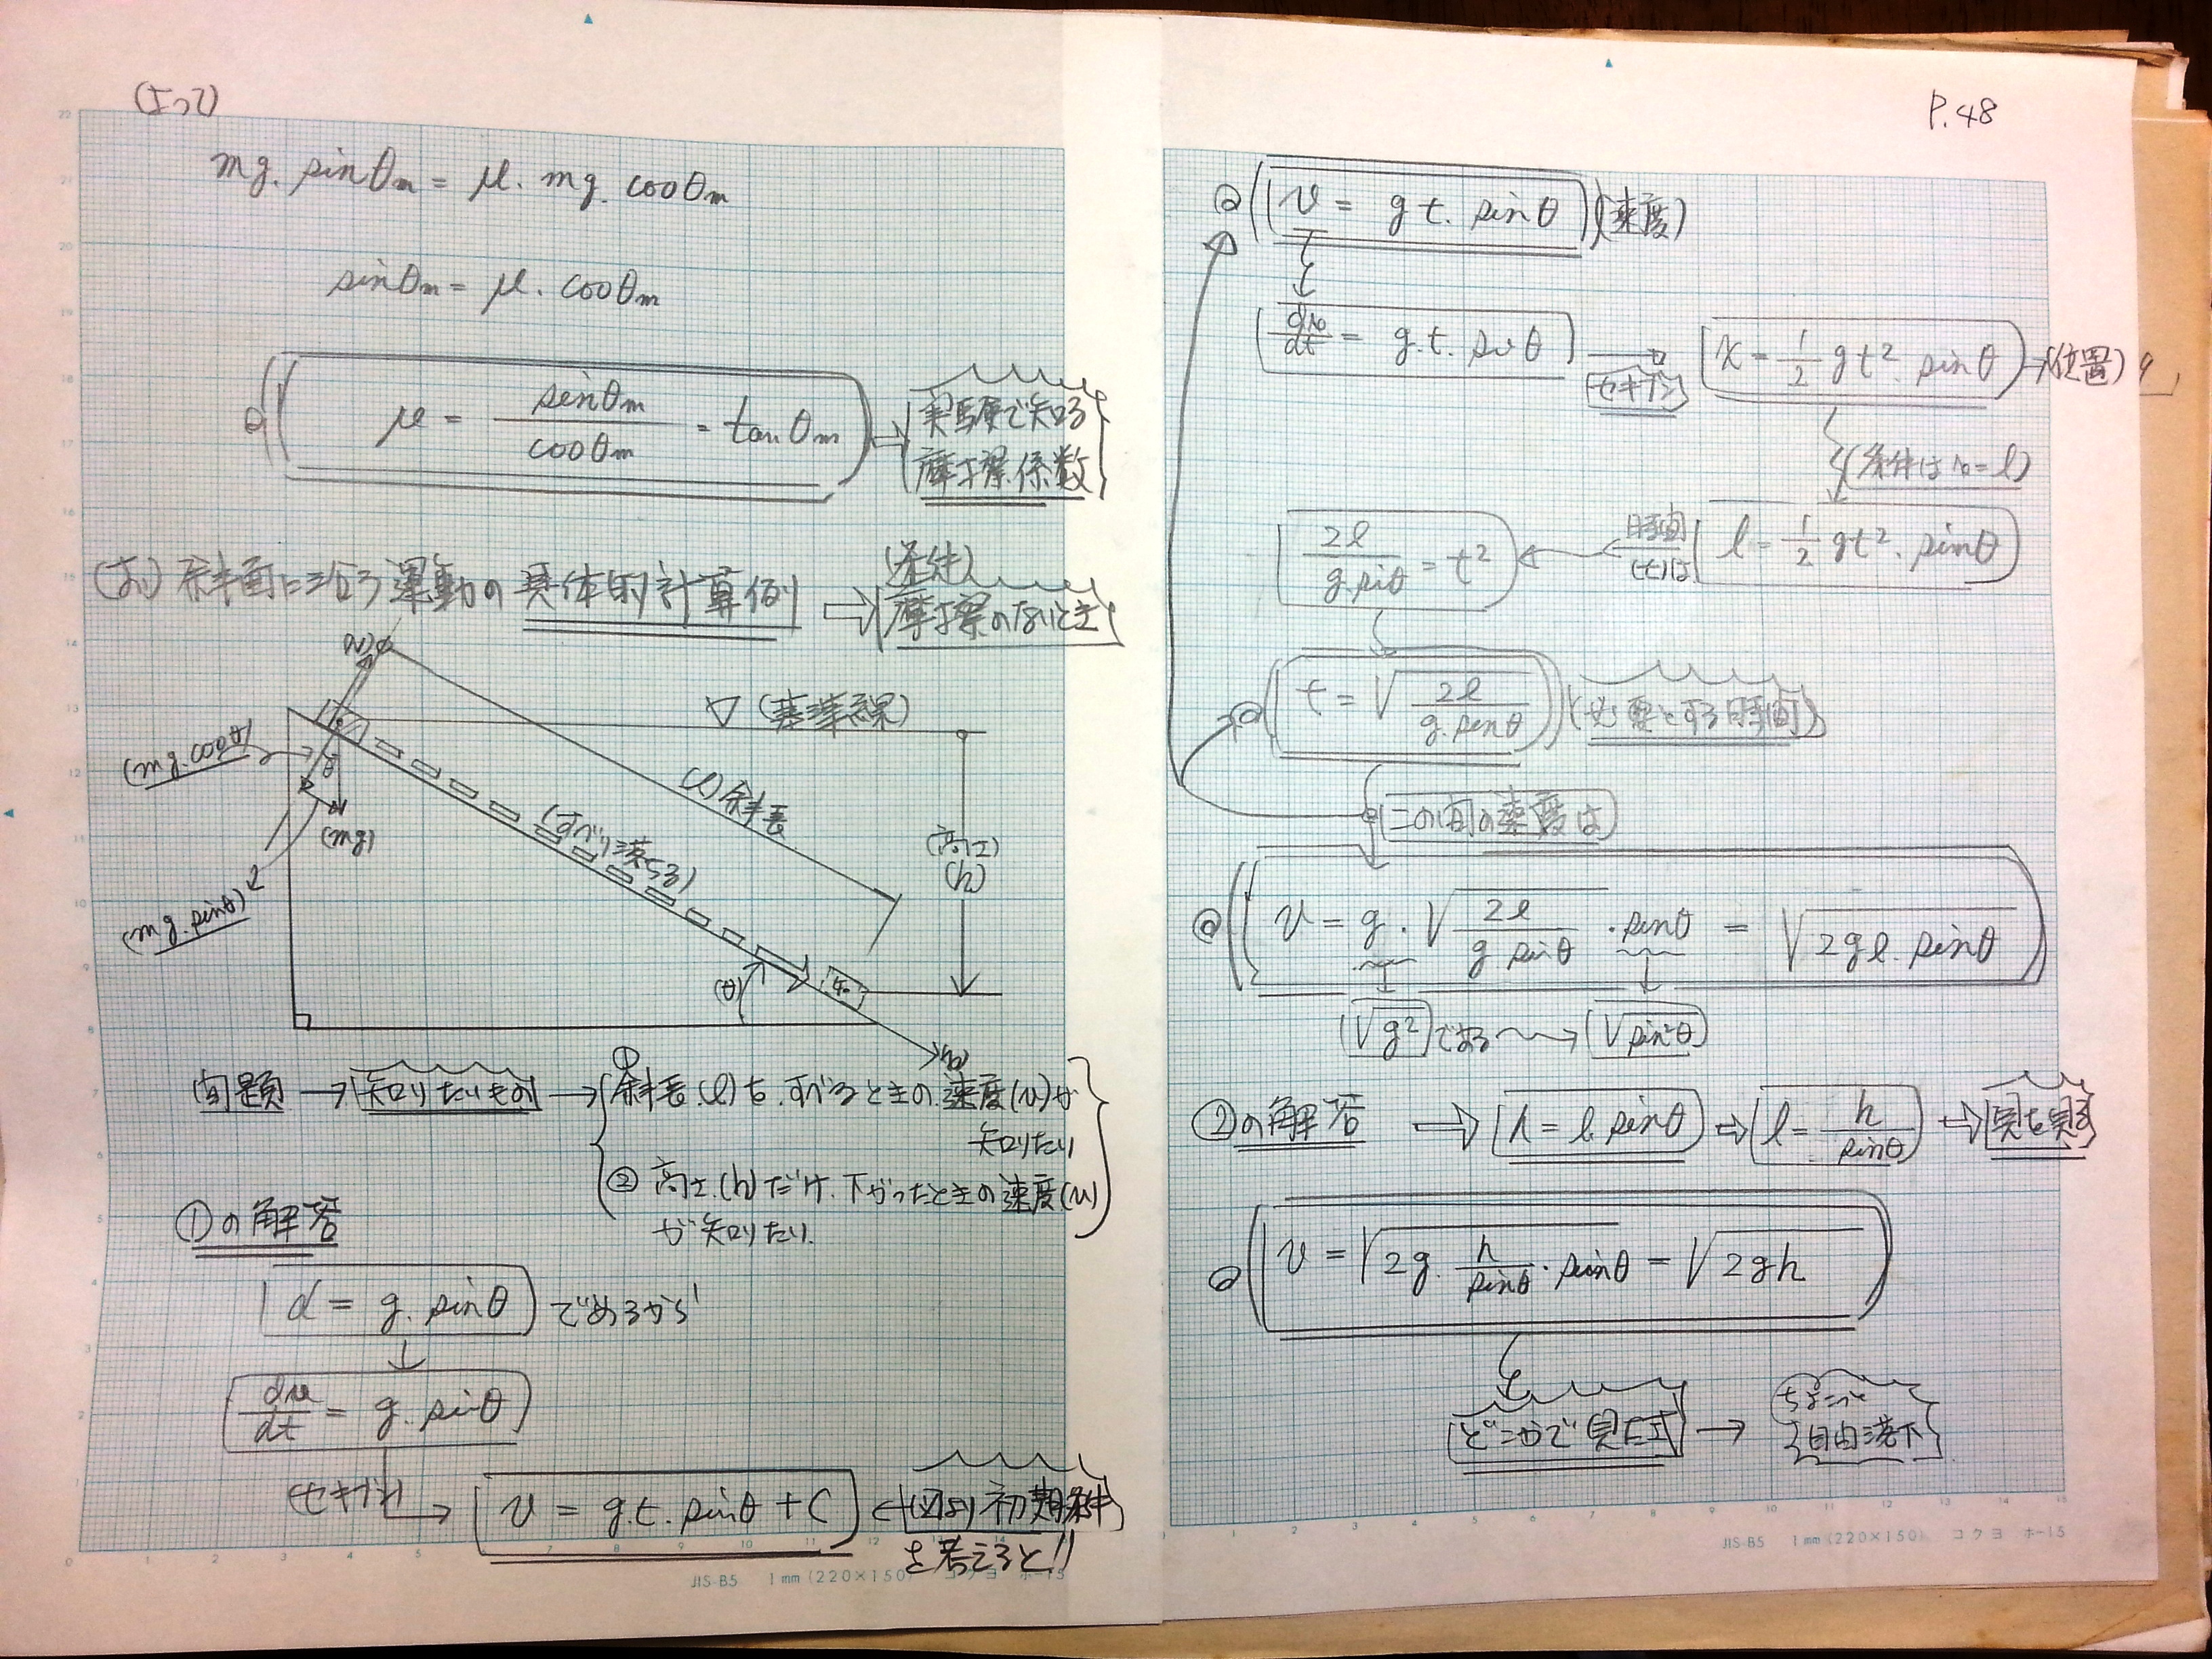 (よって)
mg. sinθm = μ. mg. cosθm
sinθm = μ. cosθm
μ = sinθm / cosθm = tanθm
実験で知る
摩擦係数
斜面に沿う運動の具体的計算例
(条件)
摩擦のないとき
(N)
(基準線)
(mg.cosθ)
θ
(mg)
(mg.sinθ)
(l)斜長
(すべり落ちる)
(高さ)
(h)
(θ)
問題 → 知りたいもの → ① 斜長(l)を.すべるときの.速度(v)が
知りたい
② 高さ.(h)だけ.下がったときの速度(v)
が知りたい.
①の解答
α = g. sinθ であるから
dv/dt = g. sinθ
セキブン → v = g.t. sinθ + C ← (図より)初期条件
を考えると!!
JIS-B5 1mm(220×150) コクヨ ホ-15
P.48
v = gt. sinθ (速度)
dx/dt = g.t. sinθ → セキブン x = 1/2 gt². sinθ → (位置)
(条件はx=l)
2l / g.sinθ = t² ← 時間(t)は l = 1/2 gt². sinθ
t = √(2l / g.sinθ) (必要とする時間)
この間の速度は
v = g. √(2l / g sinθ) ・sinθ = √(2gl. sinθ)
√g² である → √sin²θ
②の解答 ⇒ h = l. sinθ → l = h / sinθ →
v = √(2g. h/sinθ ・ sinθ) = √2gh
どこかで見た式 → ちょこっと
自由落下
JIS-B5 1mm(220×150) コクヨ ホ-15